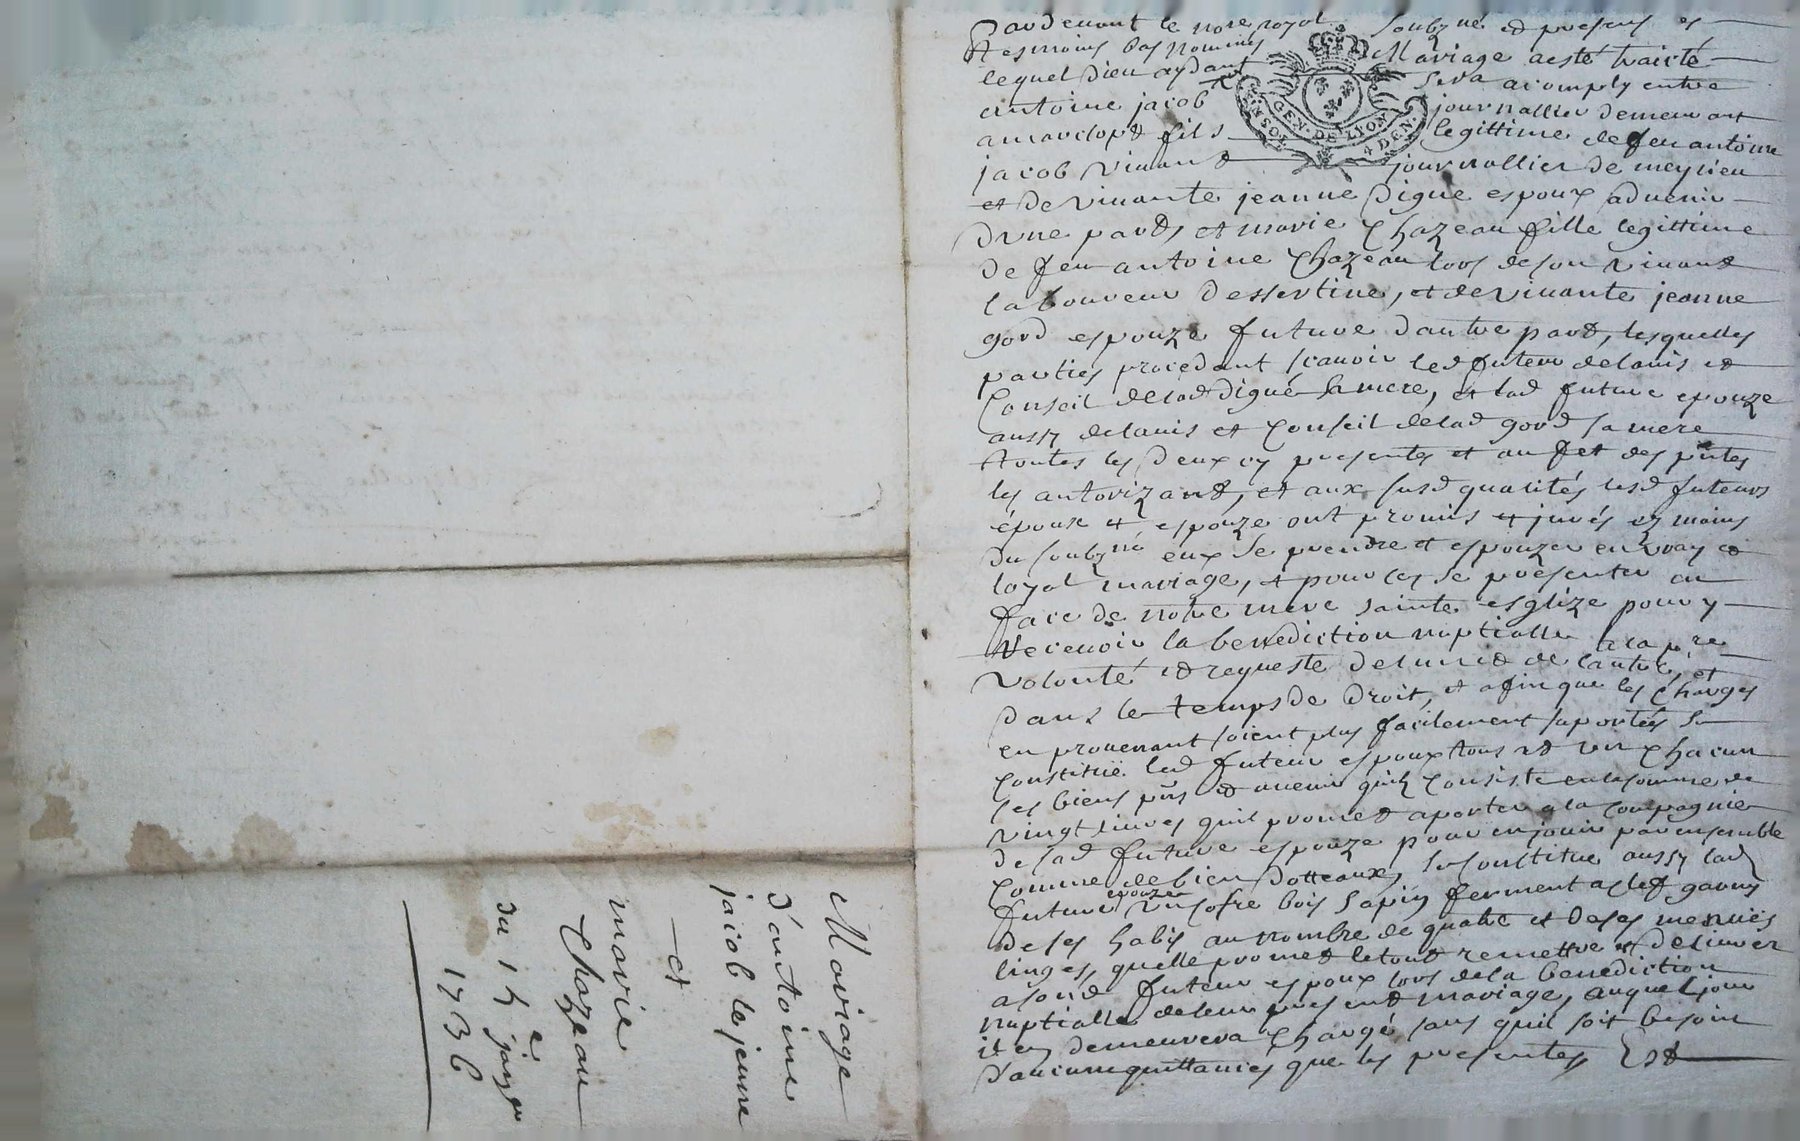 Pardevant le no.re royal soubz.né et presens es
tesmoins bas nommés Mariage a esté traicté
lequel dieu aydant sera acomply entre
antoine jacob journallier demeurant
a marclopt fils legittime de feu antoine
GEN. DE LYON
4 DEN.
jacob vivant journallier de meylieu
et de vivante jeanne Digue espoux advenir
dune part, et marie Chazeau fille legittime
de feu antoine Chazeau lors de son vivant
laboureur dessertine, et de vivante jeanne
gord espouze future dautre part, lesquelles
parties procedant scauoir led futeur de lauis et
Conseil de lad digue sa mere, et lad future epouze
aussy de lauis et Conseil de lad gord sa mere
toutes les deux cy presentes et au fet des pntes
les autorizant, et aux susd qualités lesd futeurs
époux et espouze ont promis et jurés ez mains
du soubz.né eux se prendre et espouzer en vray et
loyal mariage, et pour ces se presenter en
face de notre mere sainte esglize pour y
Recevoir la benediction nuptialle a la p.re
volonté et requeste de lun et de lautre, et
dans le temps de droit, et afin que les Charges
en prouenant soient plus facilement suportées se
Constitue led futeur espoux tous et un chacun
ses biens pñs et auenir quil Consiste en la somme de
vingt liures quil promet aporter a la Compagnie
de sad future espouze pour en jouir par ensemble
Comme de bien dotteaux, se Constitue aussy lad
future epouze un cofre bois sapin fermant a clef garny
de ses habis au nombre de quatre et de ses menues
linges, quelle promet le tout remettre et deliurer
a sond futeur espoux lors de la benediction
nuptialle de leur present mariage, auquel jour
il en demeurera Chargé sans quil soit besoin
daucune quittances que les presentes, Est
Mariage
d'antoine
jacob le jeune
et
marie
Chazeau
du 15e janver
1736